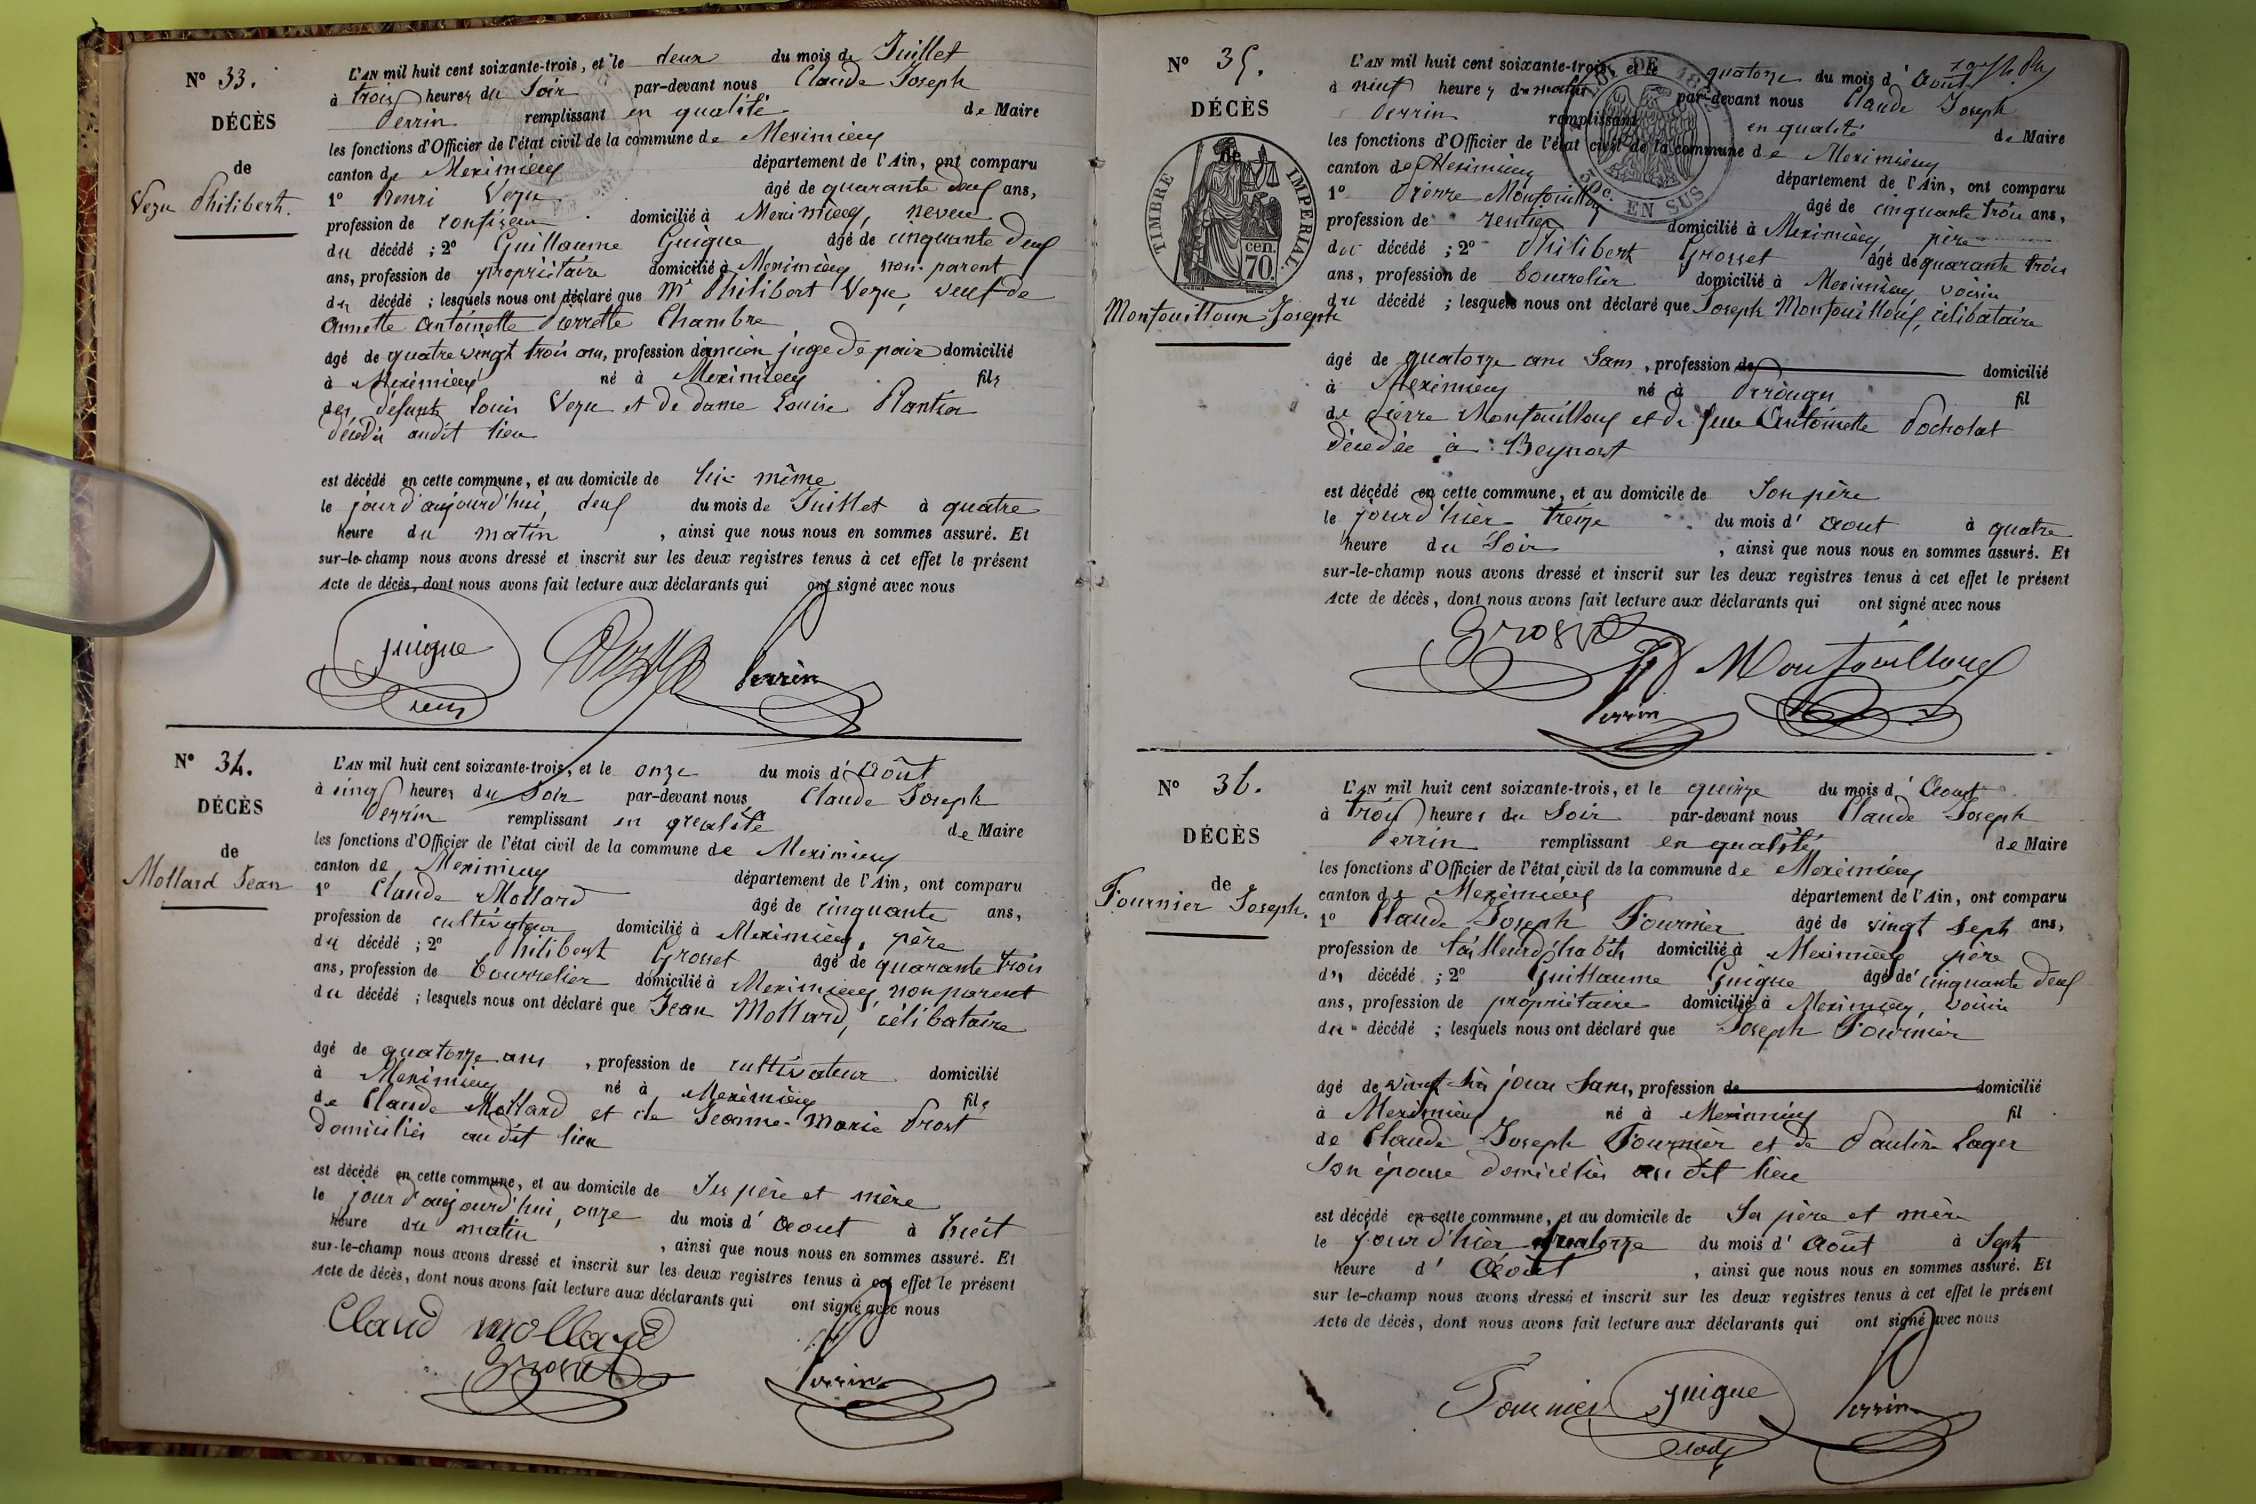 N° 33.
DÉCÈS
de
Vezu Philibert.
L'AN mil huit cent soixante-trois, et le deux du mois de Juillet
à trois heures du Soir par-devant nous Claude Joseph
Perrin remplissant en qualité de Maire
les fonctions d'Officier de l'état civil de la commune de Meximieux
canton de Meximieux département de l'Ain, ont comparu
1° henri Vezu âgé de quarante deux ans,
profession de confiseur domicilié à Meximieux, neveu
du décédé ; 2° Guillaume Guigue âgé de cinquante deux
ans, profession de propriétaire domicilié à Meximieux, non parent
du décédé ; lesquels nous ont déclaré que Mr Philibert Vezu, veuf de
Annette Antoinette Pierrette Chambre
âgé de quatre vingt trois ans, profession d'ancien juge de paix domicilié
à Meximieux né à Meximieux fils
des défunts Louis Vezu et de dame Louise Plantier
décédés audit lieu
est décédé en cette commune, et au domicile de lui même
le jour d'aujourd'hui, deux du mois de Juillet à quatre
heure du matin, ainsi que nous nous en sommes assuré. Et
sur-le-champ nous avons dressé et inscrit sur les deux registres tenus à cet effet le présent
Acte de décès, dont nous avons fait lecture aux déclarants qui ont signé avec nous
guigue Perrin
N° 34.
DÉCÈS
de
Mollard Jean
L'AN mil huit cent soixante-trois, et le onze du mois d'Août
à cinq heures du Soir par-devant nous Claude Joseph
Perrin remplissant en qualité de Maire
les fonctions d'Officier de l'état civil de la commune de Meximieux
canton de Meximieux département de l'Ain, ont comparu
1° Claude Mollard âgé de cinquante ans,
profession de cultivateur domicilié à Meximieux, père
du décédé ; 2° Philibert Grosset âgé de quarante trois
ans, profession de bourrelier domicilié à Meximieux, non parent
du décédé ; lesquels nous ont déclaré que Jean Mollard, célibataire
âgé de quatorze ans, profession de cultivateur domicilié
à Meximieux né à Meximieux fils
de Claude Mollard et de Jeanne-Marie Prost
domiciliés au dit lieu
est décédé en cette commune, et au domicile de Ses père et mère
le jour d'aujourd'hui, onze du mois d'Aout à huit
heure du matin, ainsi que nous nous en sommes assuré. Et
sur-le-champ nous avons dressé et inscrit sur les deux registres tenus à cet effet le présent
Acte de décès, dont nous avons fait lecture aux déclarants qui ont signé avec nous
Claud mollard
Grosset Perrin
N° 35.
DÉCÈS
de
TIMBRE IMPERIAL
70 cen.
Montouilloux Joseph
L'AN mil huit cent soixante-trois, et le quatorze du mois d'Aout
à neuf heures du matin par-devant nous Claude Joseph
Perrin remplissant en qualité de Maire
les fonctions d'Officier de l'état civil de la commune de Meximieux
canton de Meximieux département de l'Ain, ont comparu
1° Pierre Montouilloux âgé de cinquante trois ans,
profession de rentier domicilié à Meximieux, père
du décédé ; 2° Philibert Grosset âgé de quarante trois
ans, profession de bourrelier domicilié à Meximieux voisin
du décédé ; lesquels nous ont déclaré que Joseph Montouilloux, célibataire
âgé de quatorze ans Sans, profession de domicilié
à Meximieux né à Pérouges fil
de Pierre Montouilloux et de feue Antoinette Pocholat
décédée à Beynost
est décédé en cette commune, et au domicile de Son père
le jour d'hier treize du mois d'Aout à quatre
heure du Soir, ainsi que nous nous en sommes assuré. Et
sur-le-champ nous avons dressé et inscrit sur les deux registres tenus à cet effet le présent
Acte de décès, dont nous avons fait lecture aux déclarants qui ont signé avec nous
Grosset Montouilloux
Perrin
N° 36.
DÉCÈS
de
Fournier Joseph.
L'AN mil huit cent soixante-trois, et le quinze du mois d'Aout
à trois heures du Soir par-devant nous Claude Joseph
Perrin remplissant en qualité de Maire
les fonctions d'Officier de l'état civil de la commune de Meximieux
canton de Meximieux département de l'Ain, ont comparu
1° Claude Joseph Fournier âgé de vingt Sept ans,
profession de tailleur d'habits domicilié à Meximieux père
du décédé ; 2° Guillaume Guigue âgé de cinquante deux
ans, profession de propriétaire domicilié à Meximieux, voisin
du décédé ; lesquels nous ont déclaré que Joseph Fournier
âgé de vingt Six jours Sans, profession de domicilié
à Meximieux né à Meximieux fil
de Claude Joseph Fournier et de Pauline Lager
Son épouse domiciliés au dit lieu
est décédé en cette commune, et au domicile de Ses père et mère
le jour d'hier quatorze du mois d'Août à Sept
heure d'Août, ainsi que nous nous en sommes assuré. Et
sur le-champ nous avons dressé et inscrit sur les deux registres tenus à cet effet le présent
Acte de décès, dont nous avons fait lecture aux déclarants qui ont signé avec nous
Fournier guigue Perrin